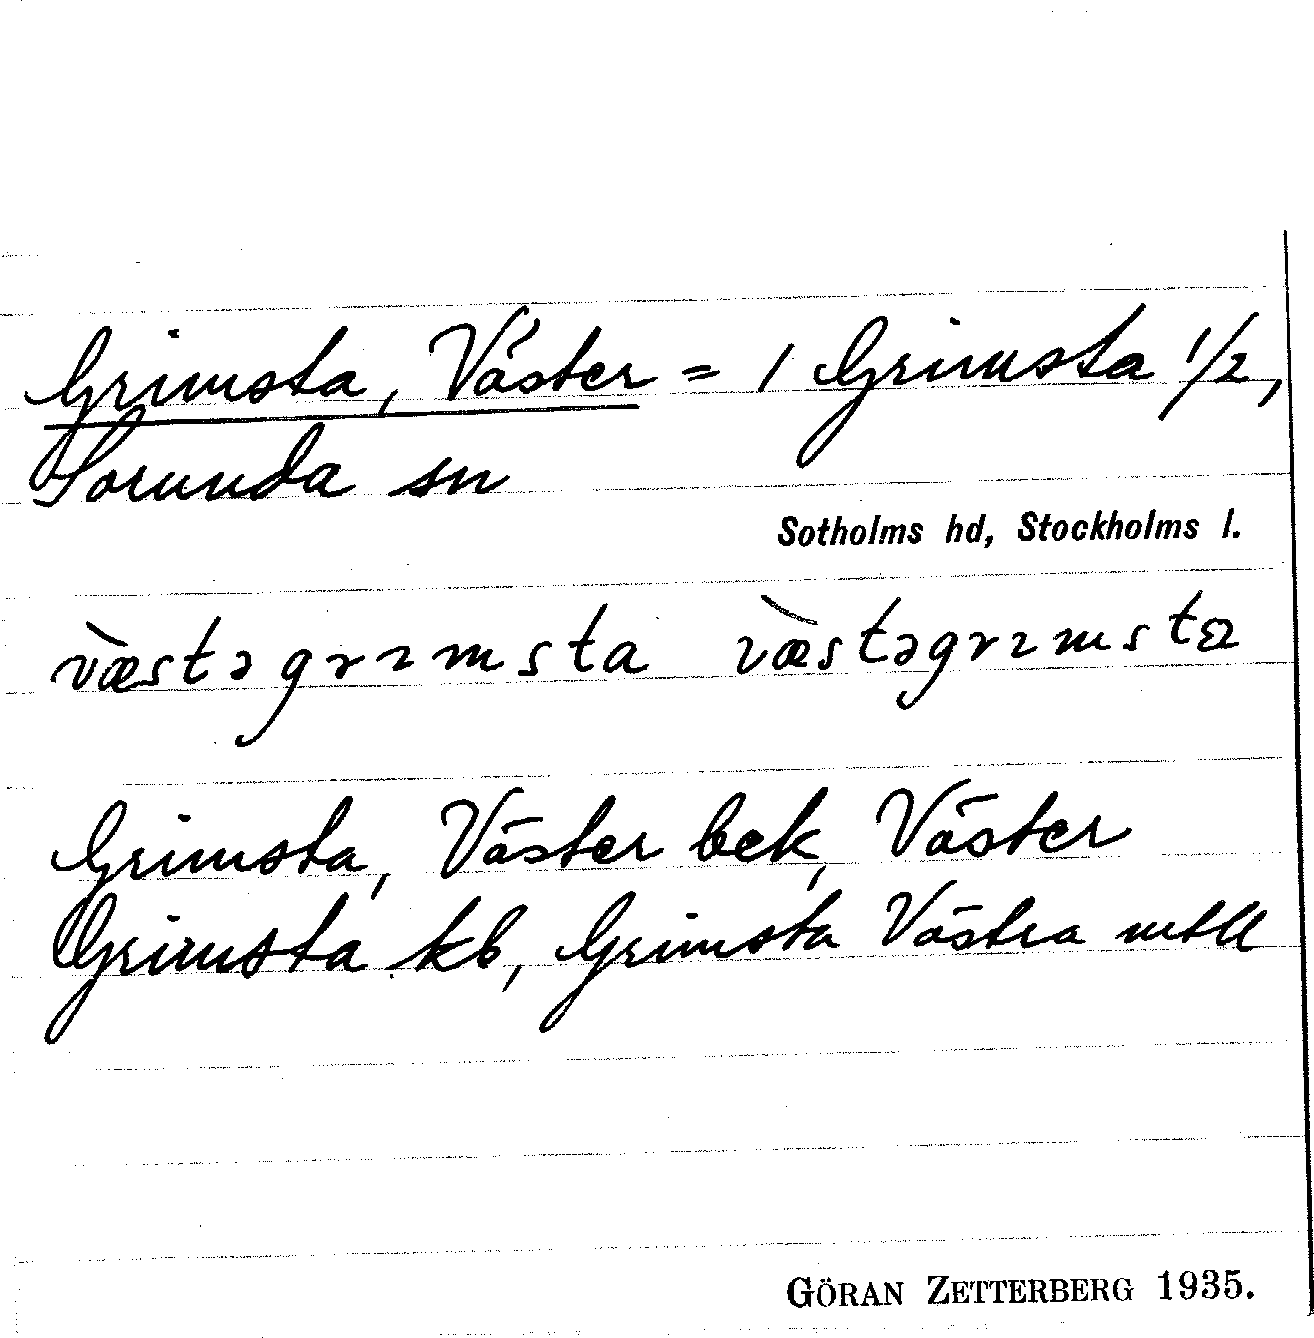 Grimsta, Väster = 1 Grimsta 1/2,
Sorunda sn
Sotholms hd, Stockholms l.
væ̀stəgrımsta væ̀stəgrımsta
Grimsta, Väster bek, Väster
Grimsta kb, Grimsta Västra mtll
GÖRAN ZETTERBERG 1935.